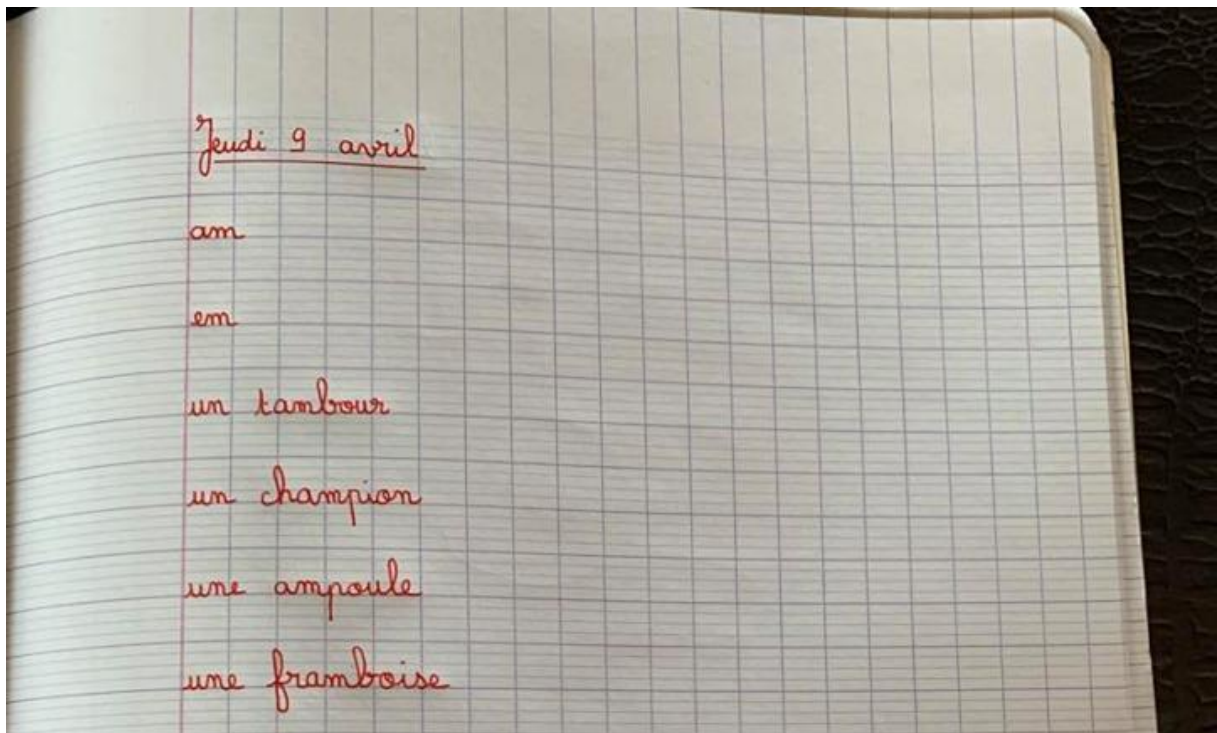 Jeudi 9 avril
am
em
un tambour
un champion
une ampoule
une framboise